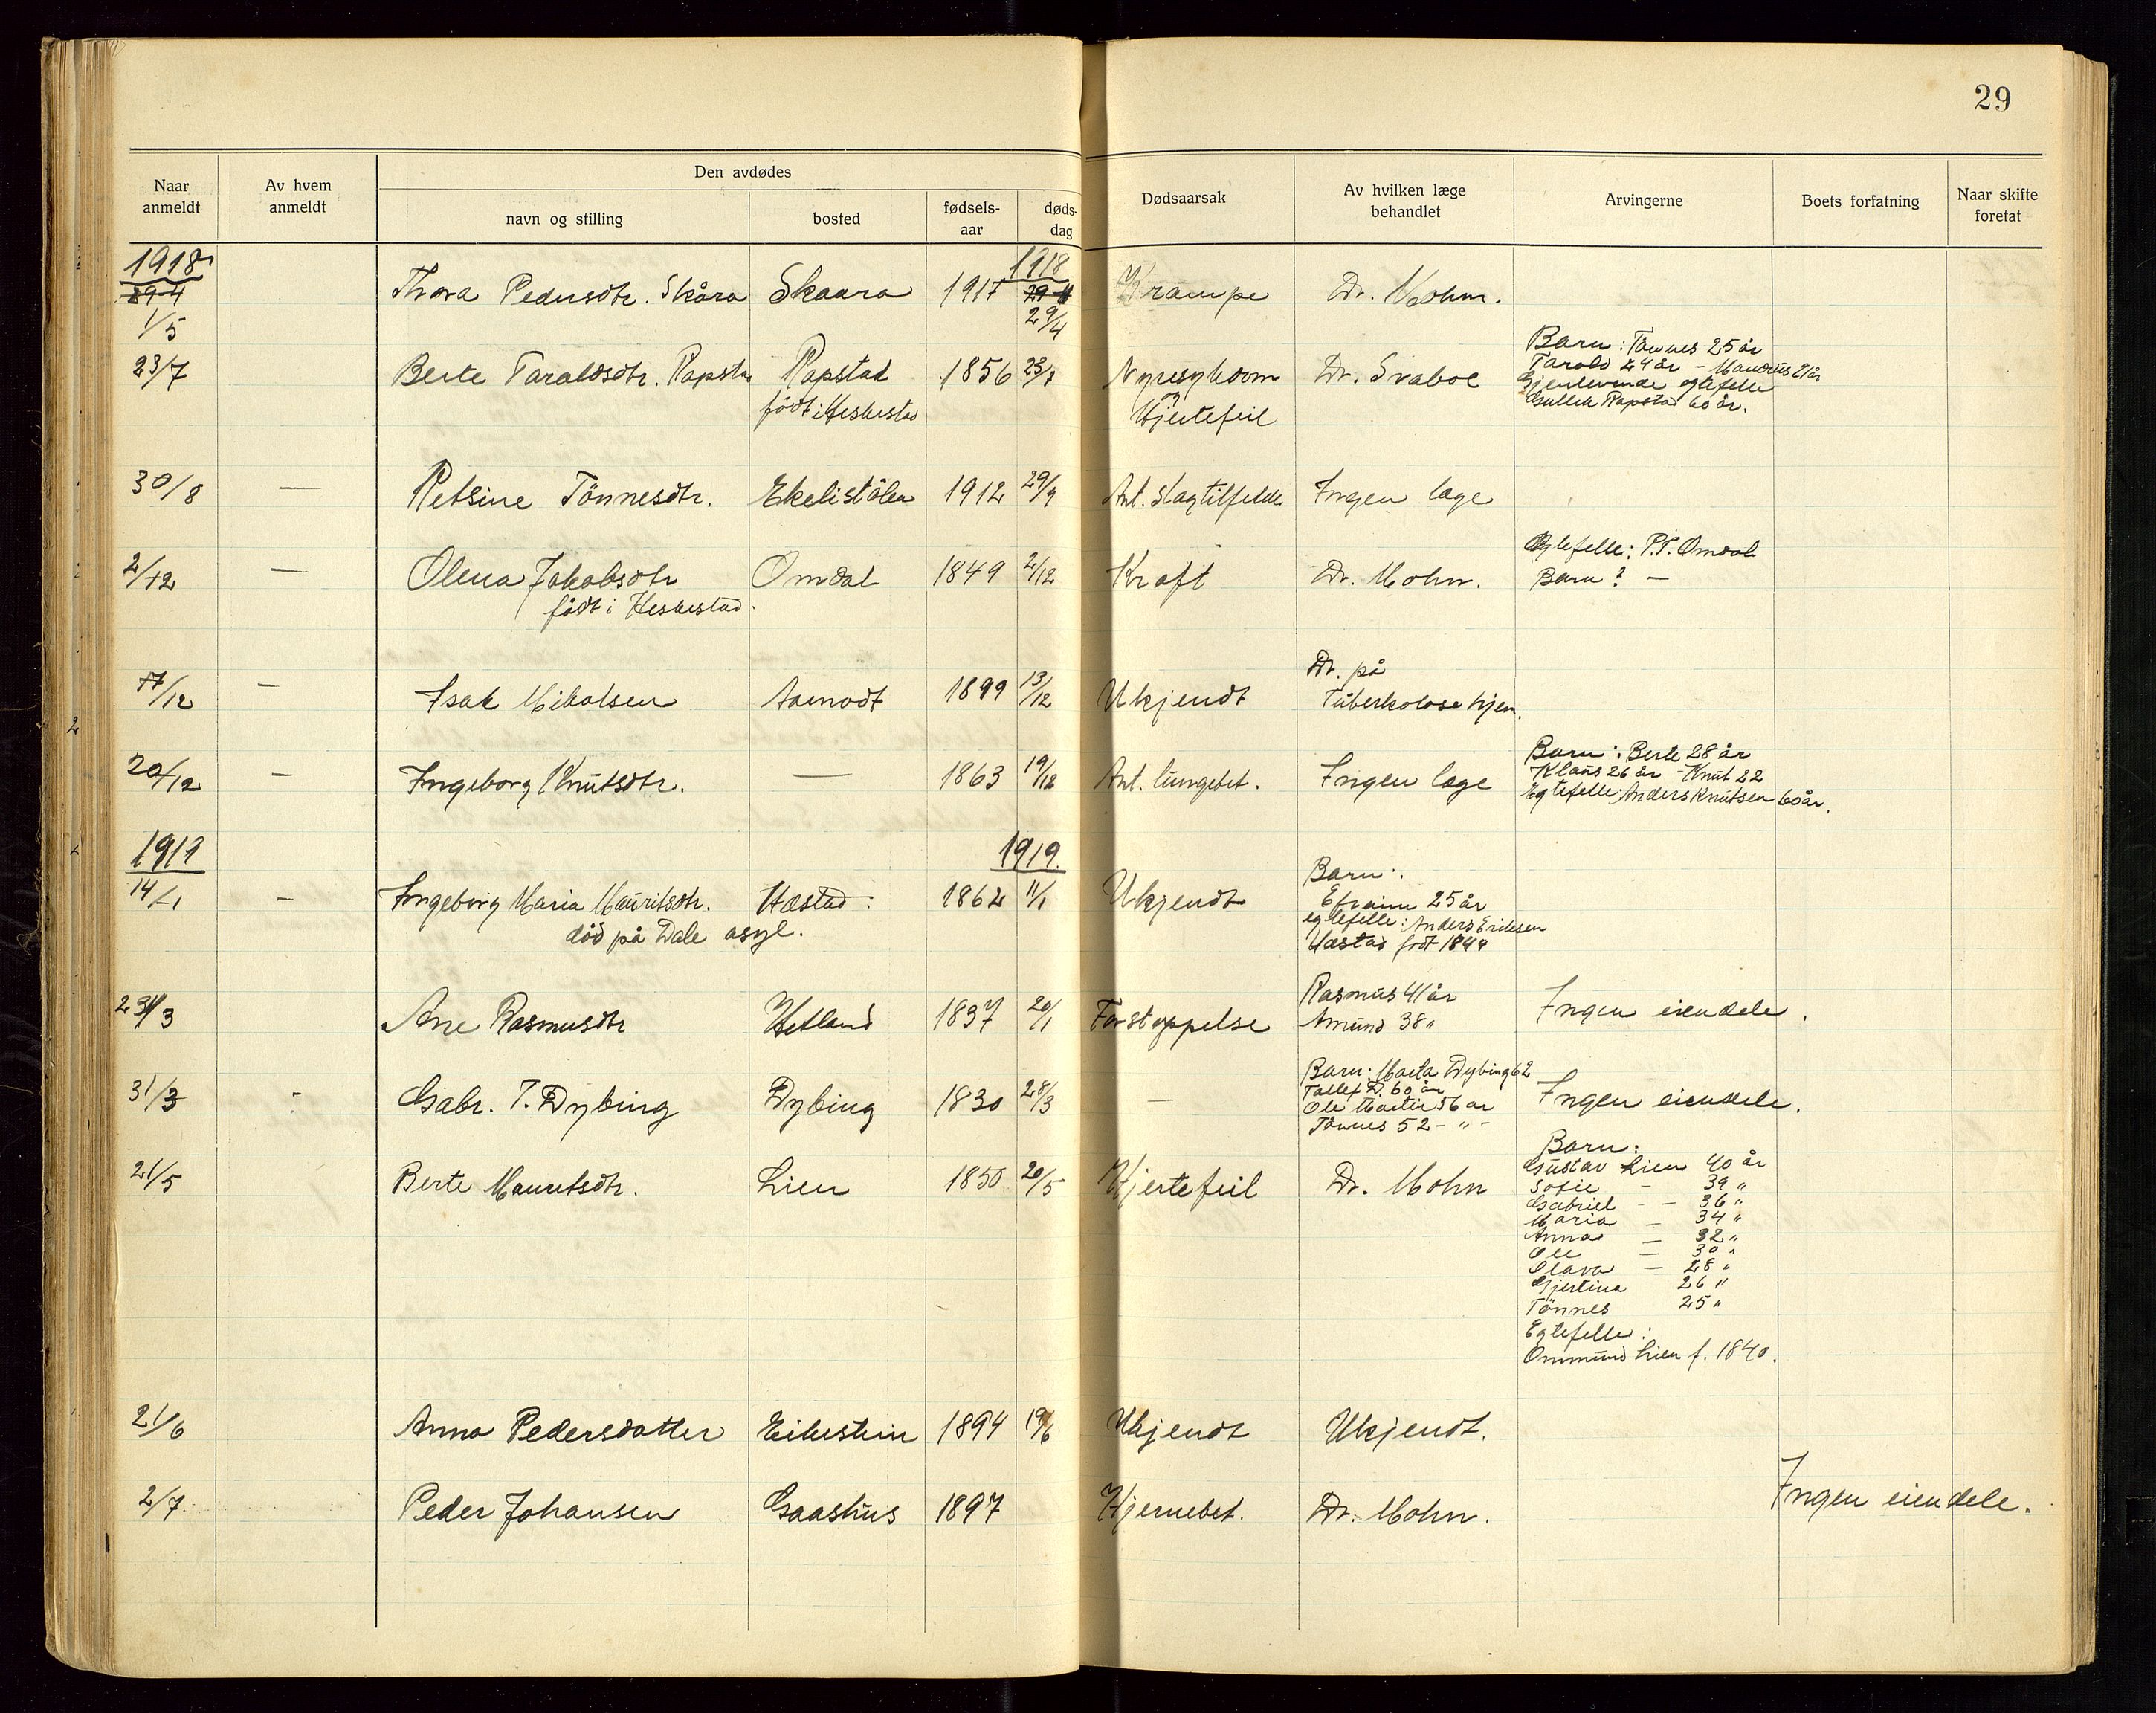 29
Naar anmeldt
Av hvem anmeldt
Den avdødes
navn og stilling
bosted
fødsels-aar
døds-dag
Dødsaarsak
Av hvilken læge behandlet
Arvingerne
Boets forfatning
Naar skifte foretat
1918 1918
29-4 Thora Pedersdtr. Skåra Skaara 1917 29-4 Krampe Dr. Mohn.
1/5 29/4
23/7 Berte Taraldsdtr. Rapstad Rapstad 1856 23/7 Nyresykdom Dr. Svaboe
født i Heskestad og
Hjertefeil
Barn: Tønnes 25 år
Tarald 24 år - Maudius 21 år
Gjenlevende egtefelle
Gullek Rapstad 60 år.
30/8 — Petsine Tönnesdtr. Ekelistölen 1912 29/9 Ant. slagtilfelde Ingen læge
2/12 — Olena Jakobsdtr Omdal 1849 2/12 Kræft Dr. Mohn.
födt i Heskestad.
Egtefelle: P.T. Omdal
Barn? —
17/12 — Isak Mikalsen Aamodt 1899 13/12 Ukjendt
Dr. på
Tuberkolosehjem.
20/12 — Ingeborg Knutsdtr. — 1863 19/12 Ant. lungebet. Ingen læge
Barn: Berte 28 år
Klaus 26 år - Knut 22
Egtefelle: Anders Knutsen 60 år.
1919 — 1919.
14/1 — Ingeborg Maria Mauritsdtr. Hæstad. 1862 11/1 Ukjendt
död på Dale asyl.
Barn:
Efraim 25 år
egtefelle: Anders Eriksen
Hæstad født 1844
Ane Rasmusdtr Hetland 1837 20/1 Forstoppelse
Rasmus 41 år
Amund 38 "
Ingen eiendele.
31/3 - Gabr. T. Dybing Dybing 1830 28/3 —
Barn: Marta Dybing 62
Tallef D. 60 år
Ole Martin 56 år
Tønnes 52 - " -
Ingen eiendele.
21/5 Berte Mauritsdtr. Lien 1850 20/5 Hjertefeil Dr. Mohn
Barn:
Gustav Lien 40 år
Sofie - 39 "
Gabriel - - 36 "
Maria — 34 "
Anna — 32 "
Ole — 30 "
Olava — 28 "
Gjertina 26 "
Tönnes 25 "
Egtefelle:
Ommund Lien f. 1840.
21/6 Anna Pedersdatter Eikestein 1894 19/6 Ukjendt Ukjendt.
2/7. Peder Johansen Gaashus 1897 Hjernebet. Dr. Mohn. Ingen eiendele.